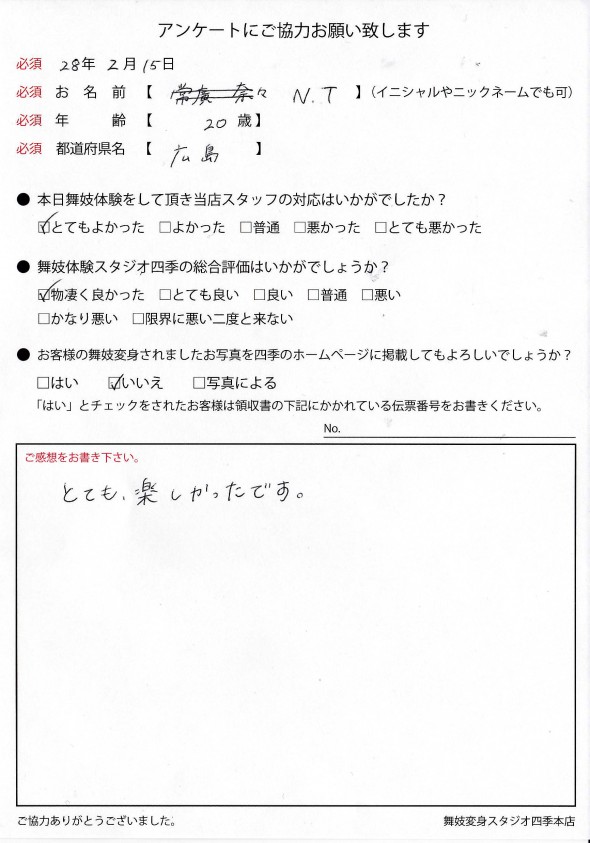 アンケートにご協力お願い致します
必須 28年 2月 15日
必須 お名前【 N.T 】（イニシャルやニックネームでも可）
必須 年齢【 20歳】
必須 都道府県名【 広島 】
● 本日舞妓体験をして頂き当店スタッフの対応はいかがでしたか？
☑とてもよかった □よかった □普通 □悪かった □とても悪かった
● 舞妓体験スタジオ四季の総合評価はいかがでしょうか？
☑物凄く良かった □とても良い □良い □普通 □悪い
□かなり悪い □限界に悪い二度と来ない
● お客様の舞妓変身されましたお写真を四季のホームページに掲載してもよろしいでしょうか？
□はい ☑いいえ □写真による
「はい」とチェックをされたお客様は領収書の下記にかかれている伝票番号をお書きください。
No.
ご感想をお書き下さい。
とても、楽しかったです。
ご協力ありがとうございました。 舞妓変身スタジオ四季本店